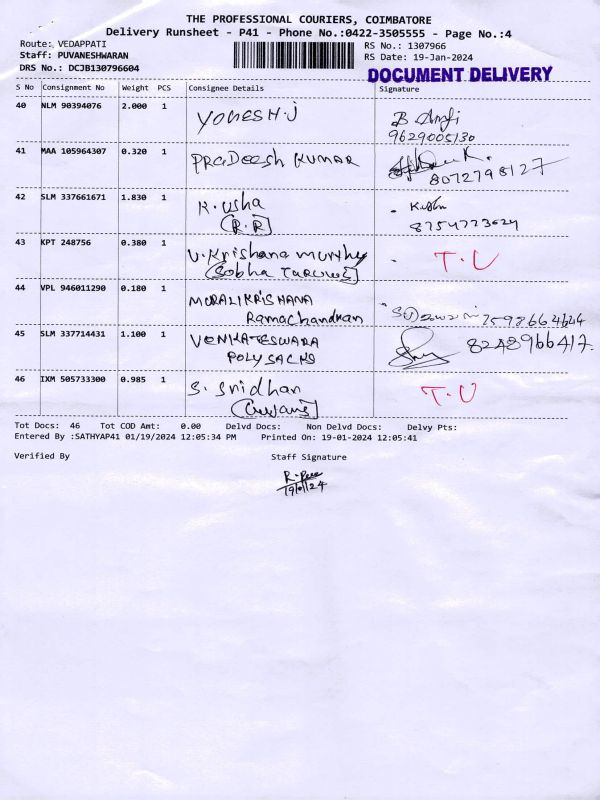 THE PROFESSIONAL COURIERS, COIMBATORE
Delivery Runsheet - P41 - Phone No.:0422-3505555 - Page No.:4
Route: VEDAPPATI RS No.: 1307966
Staff: PUVANESHWARAN RS Date: 19-Jan-2024
DRS No.: DCJB130796604 DOCUMENT DELIVERY
S No Consignment No Weight PCS Consignee Details Signature
40 NLM 90394076 2.000 1 YOGESH.J
9629005130
41 MAA 105964307 0.320 1 PRADEESH KUMAR
8072798127
42 SLM 337661671 1.830 1 K.Usha
(R.R) 8754773624
43 KPT 248756 0.380 1 V.Krishana murthy T.U
(Sobha
44 VPL 946011290 0.180 1 MURALIKRISHANA
Ramachandran 7598664644
45 SLM 337714431 1.100 1 VENKATESWARA 8248966417.
POLYSACKS
46 IXM 505733300 0.985 1 S. Sridhar T.U
Tot Docs: 46 Tot COD Amt: 0.00 Delvd Docs: Non Delvd Docs: Delvy Pts:
Entered By :SATHYAP41 01/19/2024 12:05:34 PM Printed On: 19-01-2024 12:05:41
Verified By Staff Signature
19/01/24